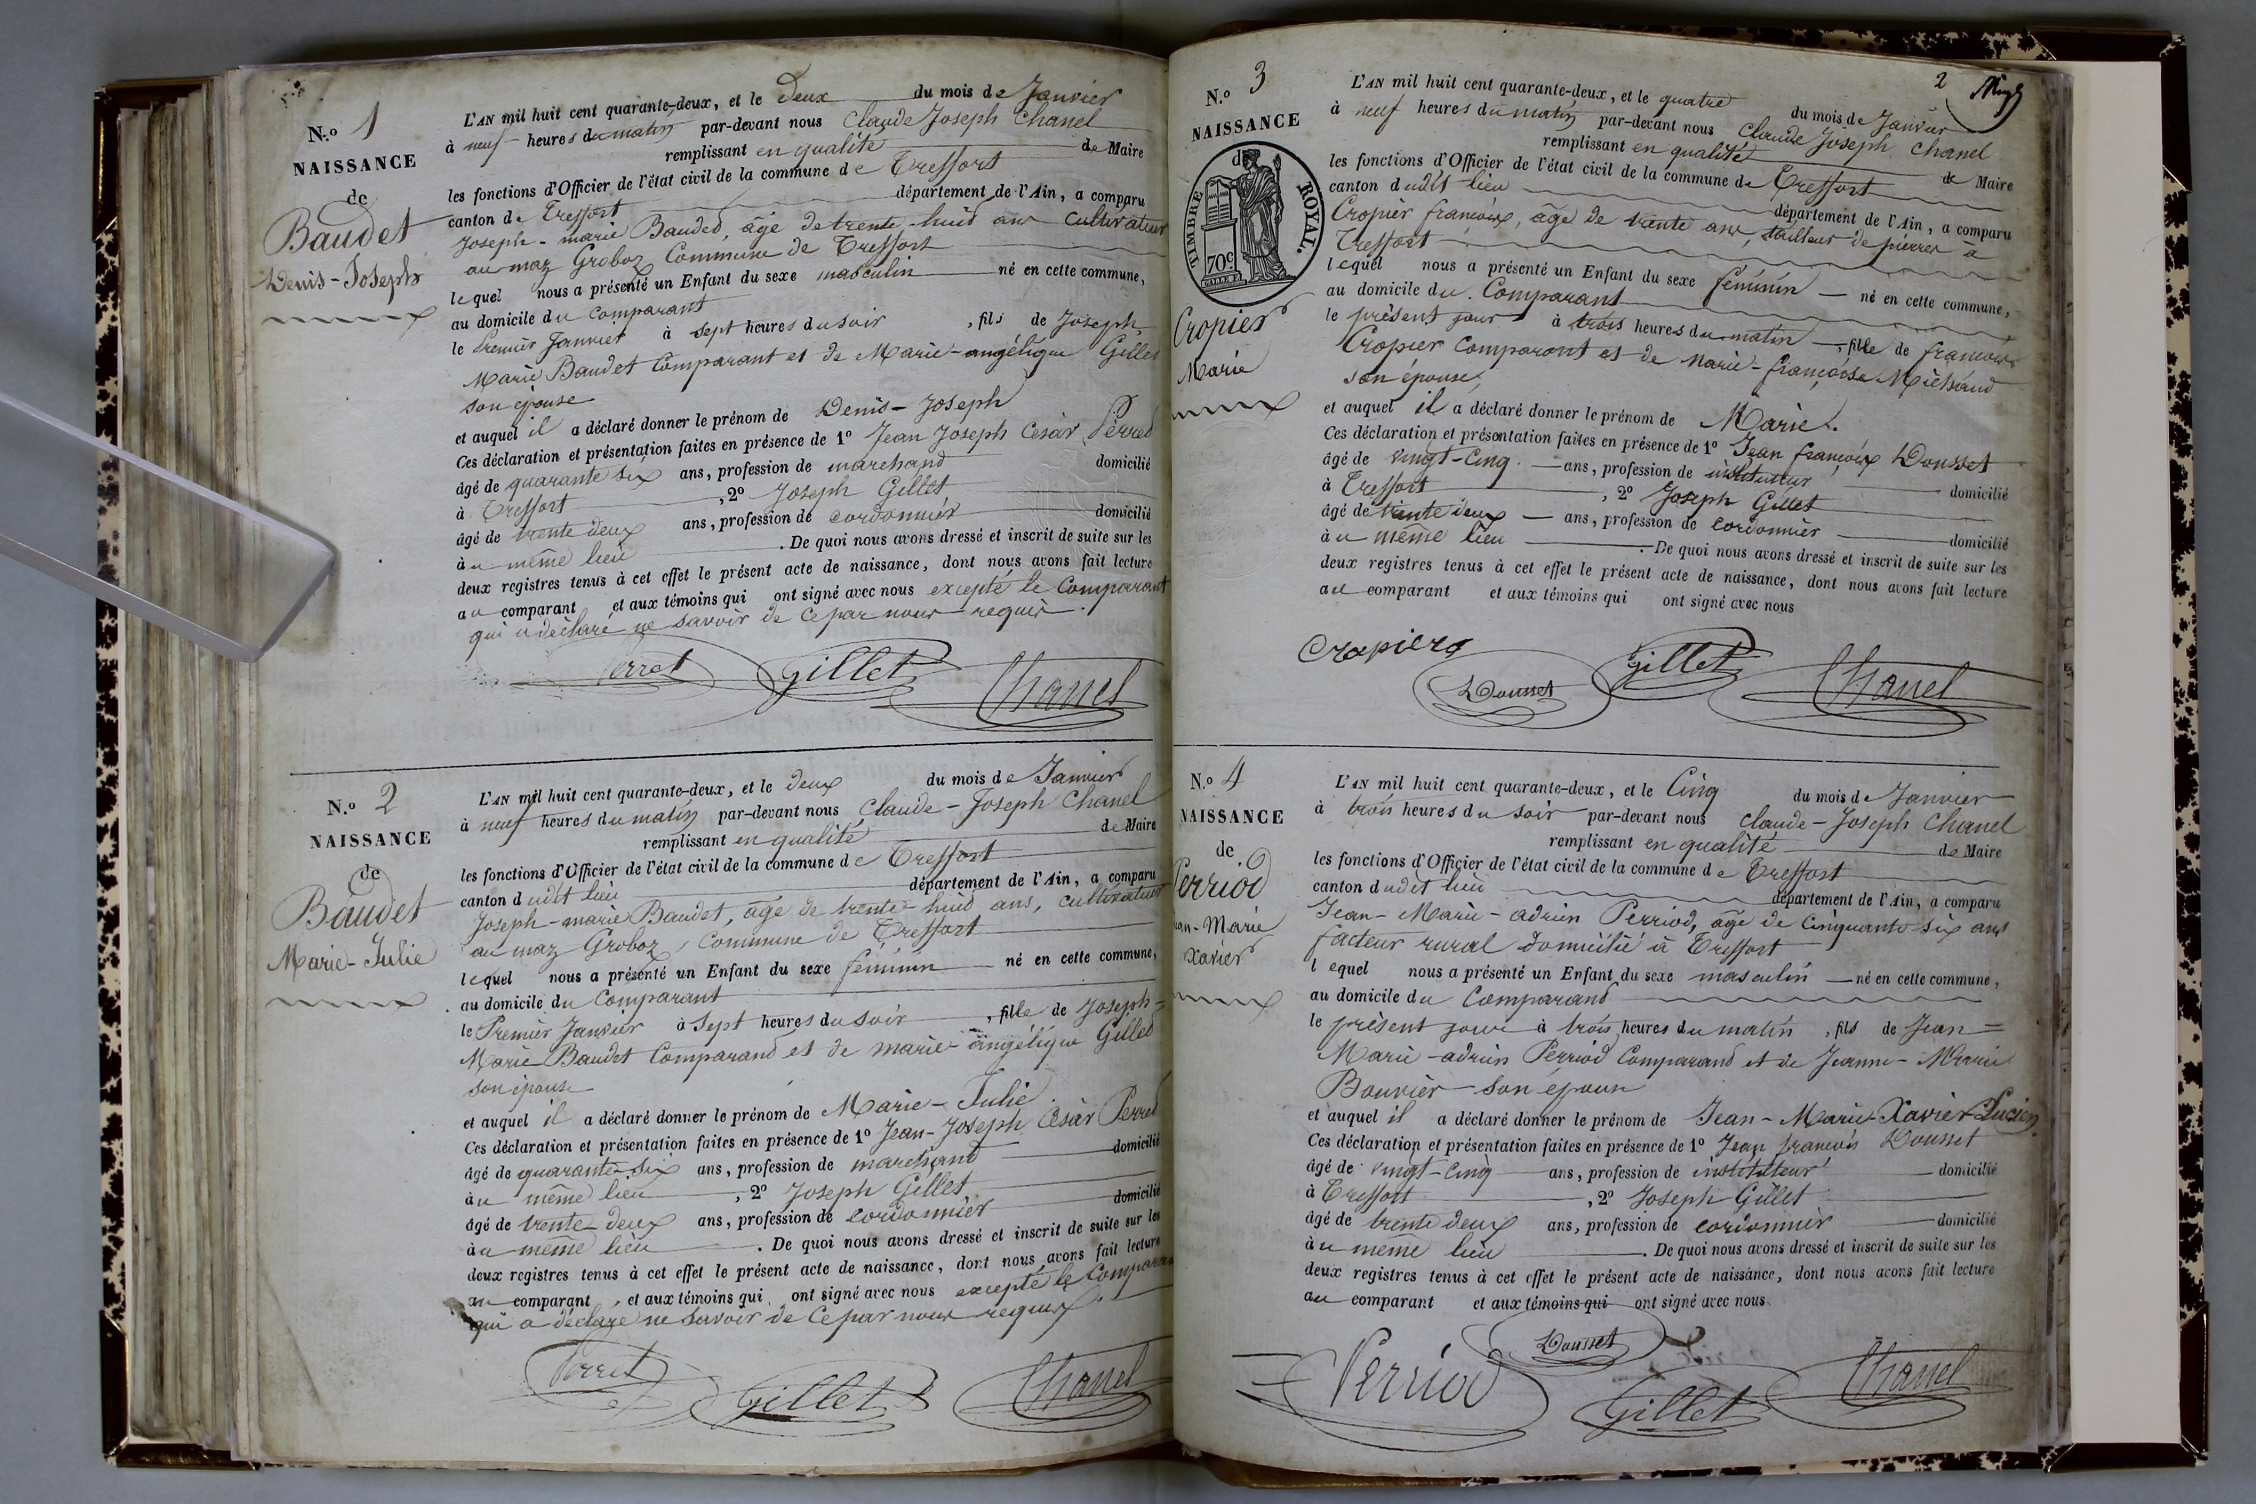 N.º 1
NAISSANCE
de
Baudet
Denis-Joseph
L'AN mil huit cent quarante-deux, et le deux du mois de Janvier
à neuf heures du matin par-devant nous Claude Joseph Chanel
remplissant en qualité de Maire
les fonctions d'Officier de l'état civil de la commune de Treffort
canton de Treffort département de l'Ain, a comparu
Joseph-marie Baudet, âgé de trente-huit ans cultivateur
au maz Groboz Commune de Treffort
lequel nous a présenté un Enfant du sexe masculin né en cette commune,
au domicile du comparant
le Premier Janvier à sept heures du soir, fils de Joseph-
Marie Baudet Comparant et de Marie-angélique Gillet
son épouse
et auquel il a déclaré donner le prénom de Denis-Joseph
Ces déclaration et présentation faites en présence de 1º Jean Joseph César Perret
âgé de quarante six ans, profession de marchand domicilié
à Treffort, 2º Joseph Gillet
âgé de trente deux ans, profession de cordonnier domicilié
au même lieu. De quoi nous avons dressé et inscrit de suite sur les
deux registres tenus à cet effet le présent acte de naissance, dont nous avons fait lecture
au comparant et aux témoins qui ont signé avec nous excepté le Comparant
qui a déclaré ne savoir de ce par nous requis.
Perret Gillet Chanel
N.º 2
NAISSANCE
de
Baudet
Marie-Julie
L'AN mil huit cent quarante-deux, et le deux du mois de Janvier
à neuf heures du matin par-devant nous Claude-Joseph Chanel
remplissant en qualité de Maire
les fonctions d'Officier de l'état civil de la commune de Treffort
canton dudit lieu département de l'Ain, a comparu
Joseph-marie Baudet, âgé de trente-huit ans, cultivateur
au maz Groboz, commune de Treffort
lequel nous a présenté un Enfant du sexe féminin né en cette commune,
au domicile du Comparant
le Premier Janvier à Sept heures du soir, fille de Joseph=
Marie Baudet Comparand et de marie-angélique Gillet
son épouse
et auquel il a déclaré donner le prénom de Marie-Julie.
Ces déclaration et présentation faites en présence de 1º Jean-Joseph César Perret
âgé de quarante-six ans, profession de marchand domicilié
au même lieu, 2º Joseph Gillet
âgé de trente-deux ans, profession de cordonnier domicilié
au même lieu. De quoi nous avons dressé et inscrit de suite sur les
deux registres tenus à cet effet le présent acte de naissance, dont nous avons fait lecture
au comparant, et aux témoins qui ont signé avec nous excepté le Comparant
qui a déclaré ne savoir de ce par nous requis.
Perret Gillet Chanel
2
N.º 3
NAISSANCE
de
TIMBRE ROYAL.
70c
Cropier
Marie
L'AN mil huit cent quarante-deux, et le quatre du mois de Janvier
à neuf heures du matin par-devant nous Claude Joseph Chanel
remplissant en qualité de Maire
les fonctions d'Officier de l'état civil de la commune de Treffort
canton dudit lieu département de l'Ain, a comparu
Cropier françois, âgé de trente ans, tailleur de pierres à
Treffort
lequel nous a présenté un Enfant du sexe féminin né en cette commune,
au domicile du Comparant
le présent jour à trois heures du matin, fille de francois
Cropier comparant et de Marie-françoise Michaud
son épouse,
et auquel il a déclaré donner le prénom de Marie.
Ces déclaration et présentation faites en présence de 1º Jean françois Dousset
âgé de vingt-cinq ans, profession de instituteur domicilié
à Treffort, 2º Joseph Gillet
âgé de trente deux ans, profession de cordonnier domicilié
au même lieu. De quoi nous avons dressé et inscrit de suite sur les
deux registres tenus à cet effet le présent acte de naissance, dont nous avons fait lecture
au comparant et aux témoins qui ont signé avec nous
Cropier Dousset Gillet Chanel
N.º 4
NAISSANCE
de
Perriod
Jean-Marie
Xavier
L'AN mil huit cent quarante-deux, et le Cinq du mois de Janvier
à trois heures du soir par-devant nous Claude-Joseph Chanel
remplissant en qualité de Maire
les fonctions d'Officier de l'état civil de la commune de Treffort
canton dudit lieu département de l'Ain, a comparu
Jean-Marie-adrien Perriod, âgé de cinquante-six ans
facteur rural domicilié à Treffort
lequel nous a présenté un Enfant du sexe masculin né en cette commune,
au domicile du Comparand
le présent jour à trois heures du matin, fils de Jean=
Marie-adrien Perriod Comparand et de Jeanne-Marie
Bouvier son épouse
et auquel il a déclaré donner le prénom de Jean-Marie-Xavier-Lucien
Ces déclaration et présentation faites en présence de 1º Jean francois Dousset
âgé de vingt-cinq ans, profession de instituteur domicilié
à Treffort, 2º Joseph Gillet
âgé de trente deux ans, profession de cordonnier domicilié
au même lieu. De quoi nous avons dressé et inscrit de suite sur les
deux registres tenus à cet effet le présent acte de naissance, dont nous avons fait lecture
au comparant et aux témoins qui ont signé avec nous
Perriod Dousset Gillet Chanel